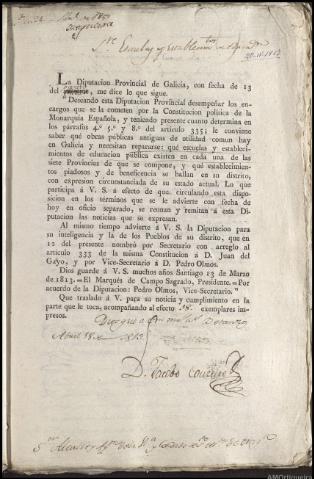 La Diputacion Provincial de Galicia, con fecha de 13
del , me dice lo que sigue.
"Deseando esta Diputacion Provincial desempeñar los en-
cargos que se la cometen por la Constitucion politica de la
Monarquía Española, y teniendo presente cuanto determina en
los párrafos 4.º 5.º y 8.º del artículo 335; le conviene
saber qué obras públicas antiguas de utilidad comun hay
en Galicia y necesitan repararse: qué escuelas y estableci-
mientos de educacion pública existen en cada una de las
siete Provincias de que se compone, y qué establecimien-
tos piadosos y de beneficencia se hallan en su distrito,
con expresion circunstanciada de su estado actual. Lo que
participa á V. S. á efecto de que circulando esta dispo-
sicion en los términos que se le advierte con fecha de
hoy en oficio separado, se reunan y remitan á esta Di-
putacion las noticias que se expresan.
Al mismo tiempo advierte á V. S. la Diputacion para
su inteligencia y la de los Pueblos de su distrito, que en
12 del presente nombró por Secretario con arreglo al
artículo 333 de la misma Constitucion á D. Juan del
Gayo, y por Vice-Secretario á D. Pedro Olmos.
Dios guarde á V. S. muchos años Santiago 13 de Marzo
de 1813.=El Marqués de Campo Sagrado, Presidente.=Por
acuerdo de la Diputacion: Pedro Olmos, Vice-Secretario."
Que traslado á V. para su noticia y cumplimiento en la
parte que le toca, acompañando al efecto 18 exemplares im-
presos.
Abril 18 1813
D. Jacobo